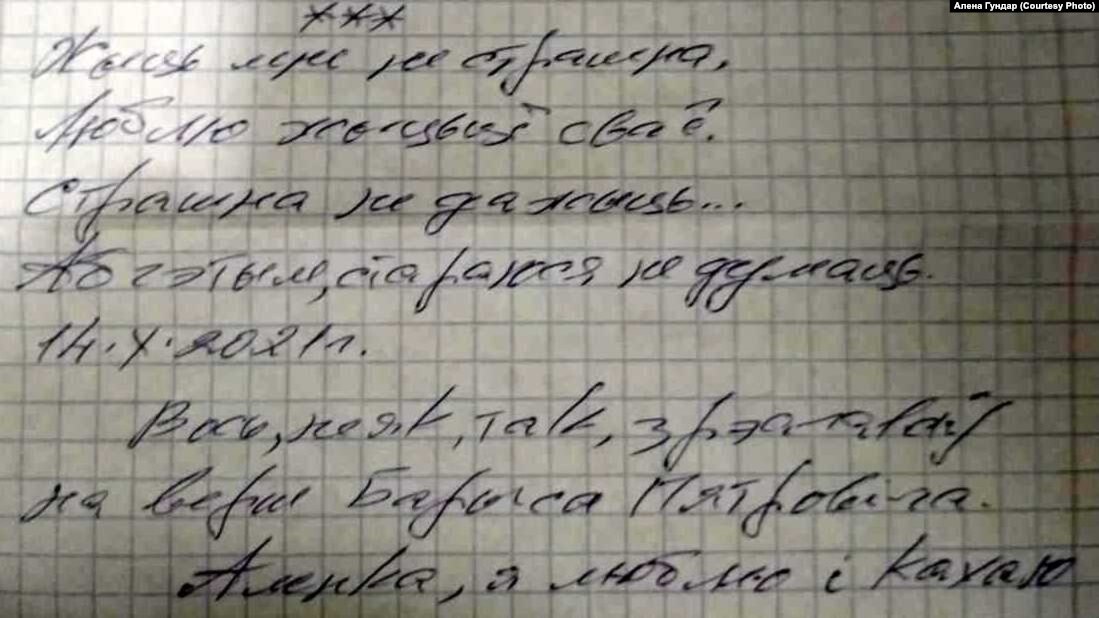 Алена Гундар (Courtesy Photo)
***
Жыць мне не страшна,
Люблю жыццё сваё.
Страшна не дажыць...
Аб гэтым, стараюся не думаць.
14.X.2021г.
Вось, неяк, так, зрэагаваў
на верш Барыса Пятровіча.
Аленка, я люблю і кахаю